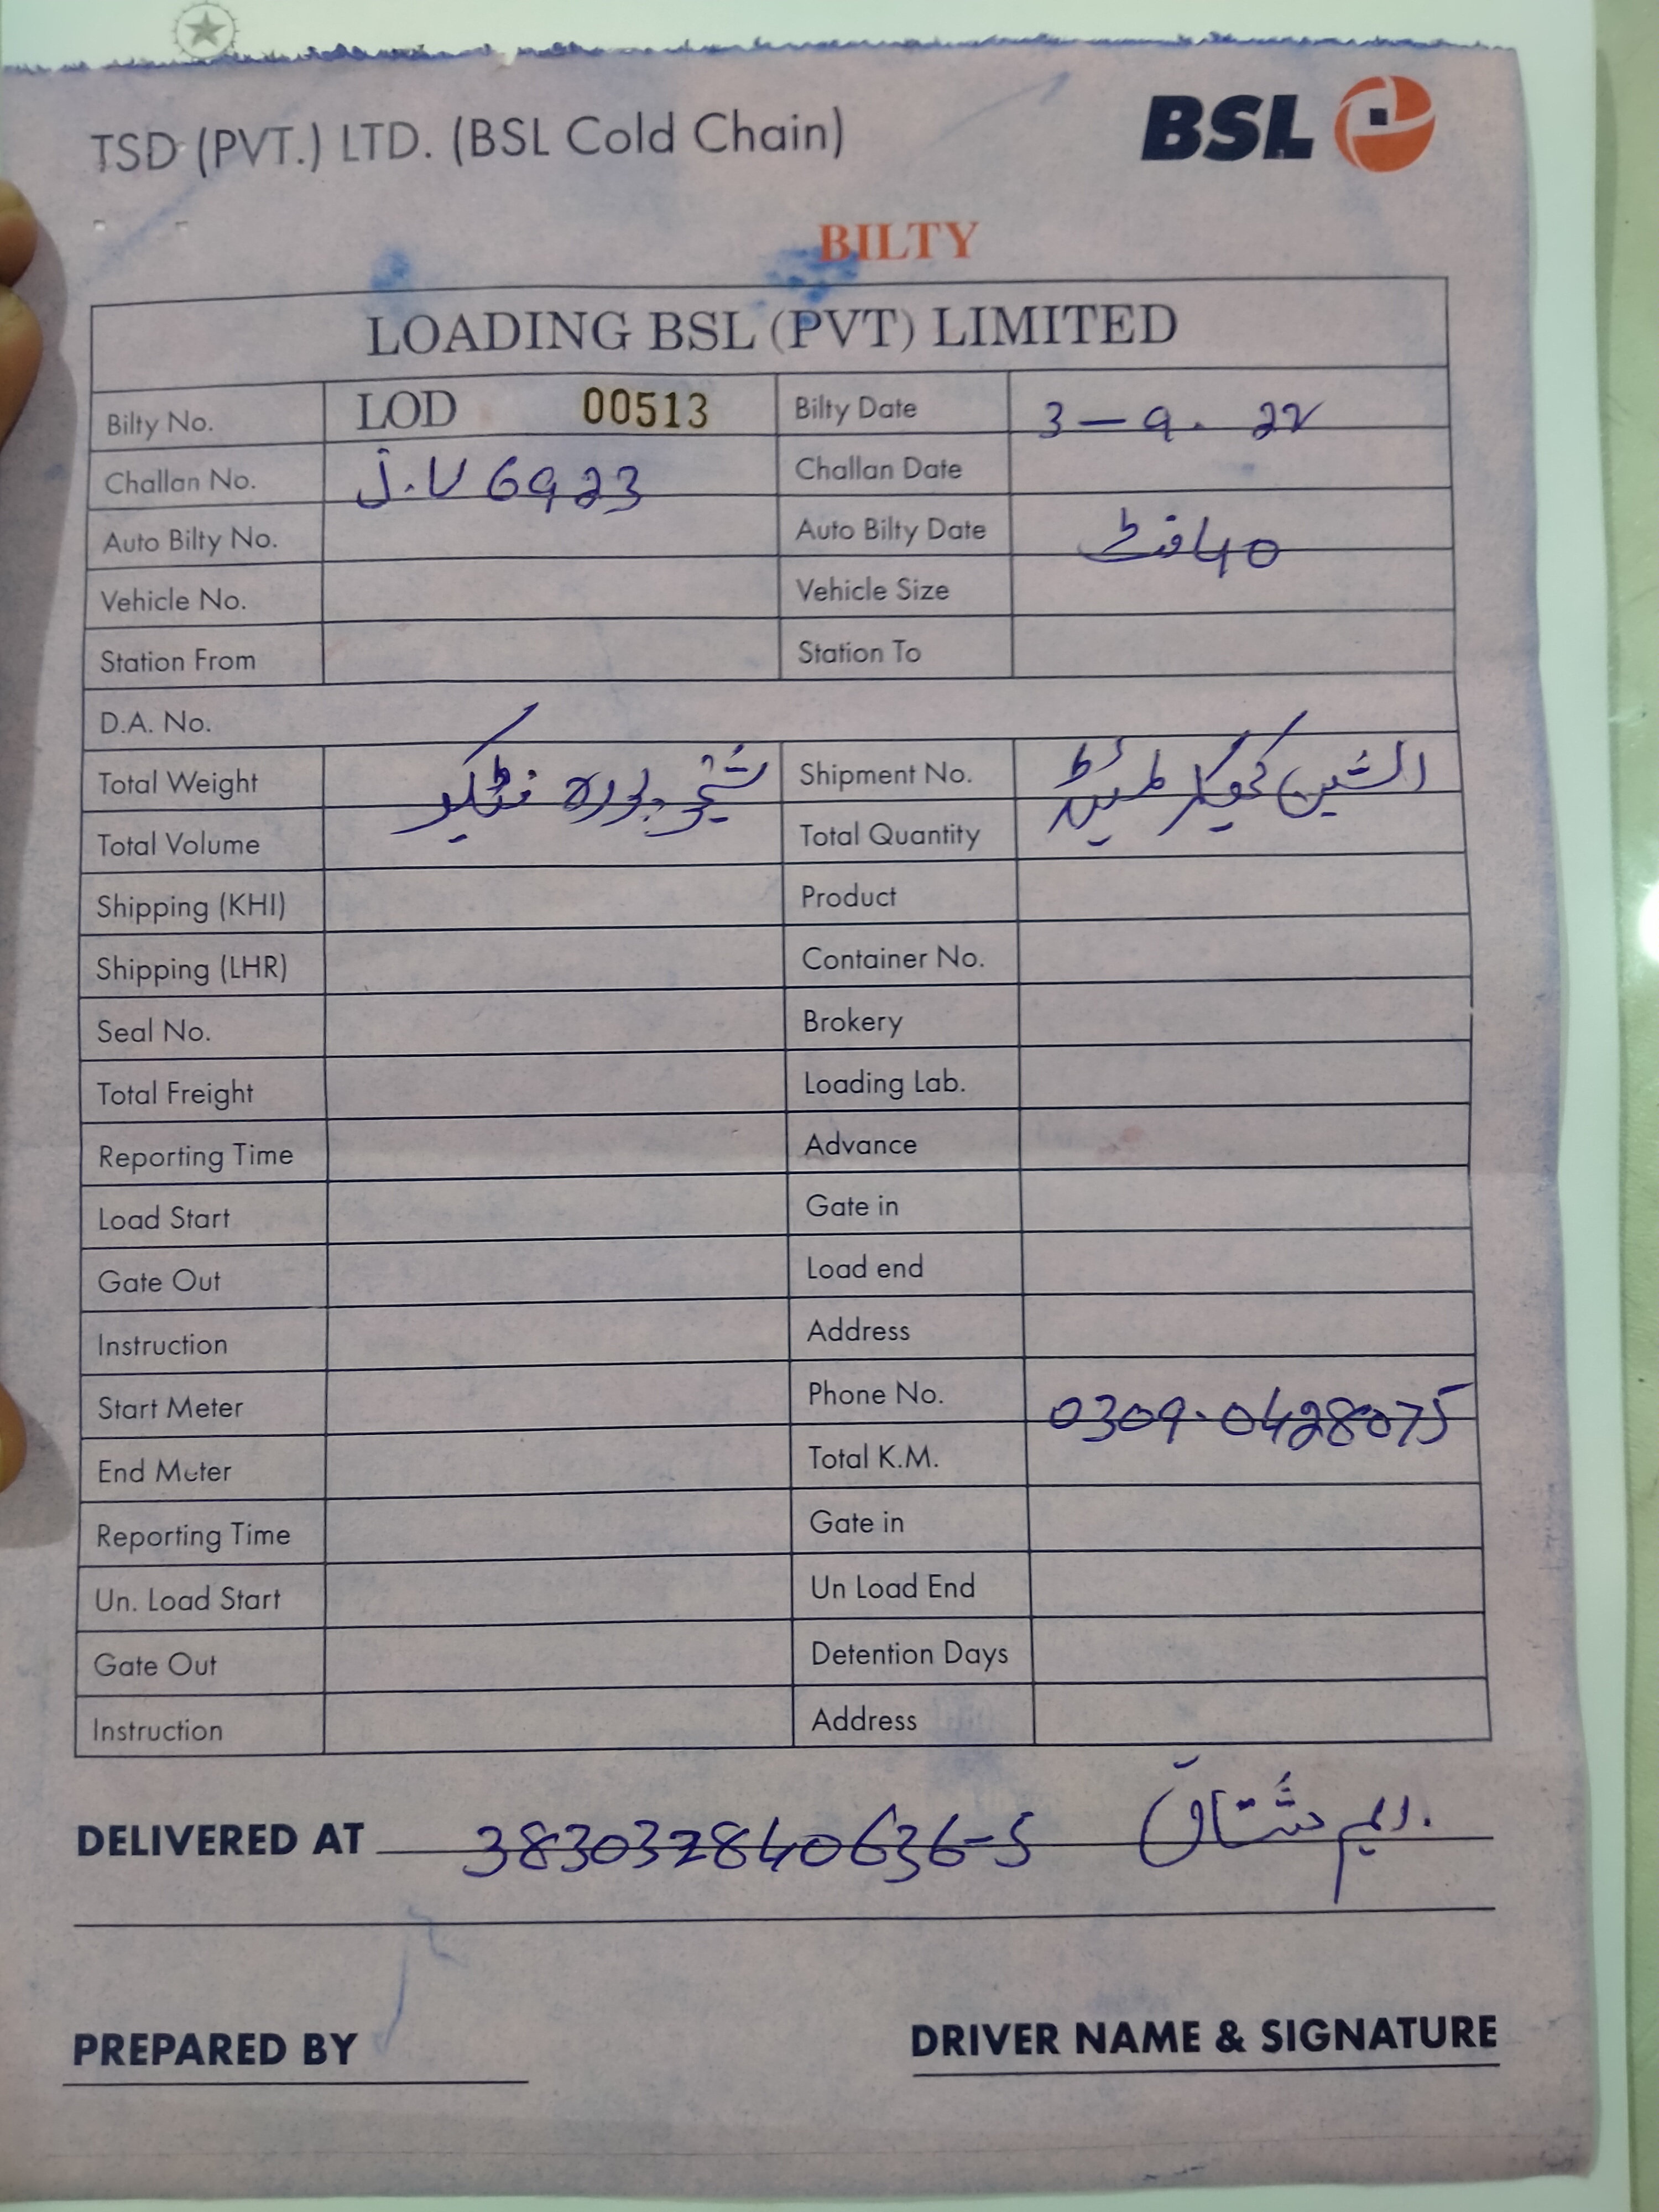 TSD (PVT.) LTD. (BSL Cold Chain) BSL
BILTY
LOADING BSL (PVT) LIMITED
Bilty No. LOD 00513 Bilty Date 3-9. 22
Challan No. J.U 6923 Challan Date
Auto Bilty No. Auto Bilty Date 40 فٹ
Vehicle No. Vehicle Size
Station From Station To
D.A. No.
Total Weight شیخوپورہ Shipment No.
Total Volume Total Quantity
Shipping (KHI) Product
Shipping (LHR) Container No.
Seal No. Brokery
Total Freight Loading Lab.
Reporting Time Advance
Load Start Gate in
Gate Out Load end
Instruction Address
Start Meter Phone No. 0309.0428075
End Meter Total K.M.
Reporting Time Gate in
Un. Load Start Un Load End
Gate Out Detention Days
Instruction Address
DELIVERED AT 383032840636-5 ایم مشتاق
PREPARED BY DRIVER NAME & SIGNATURE